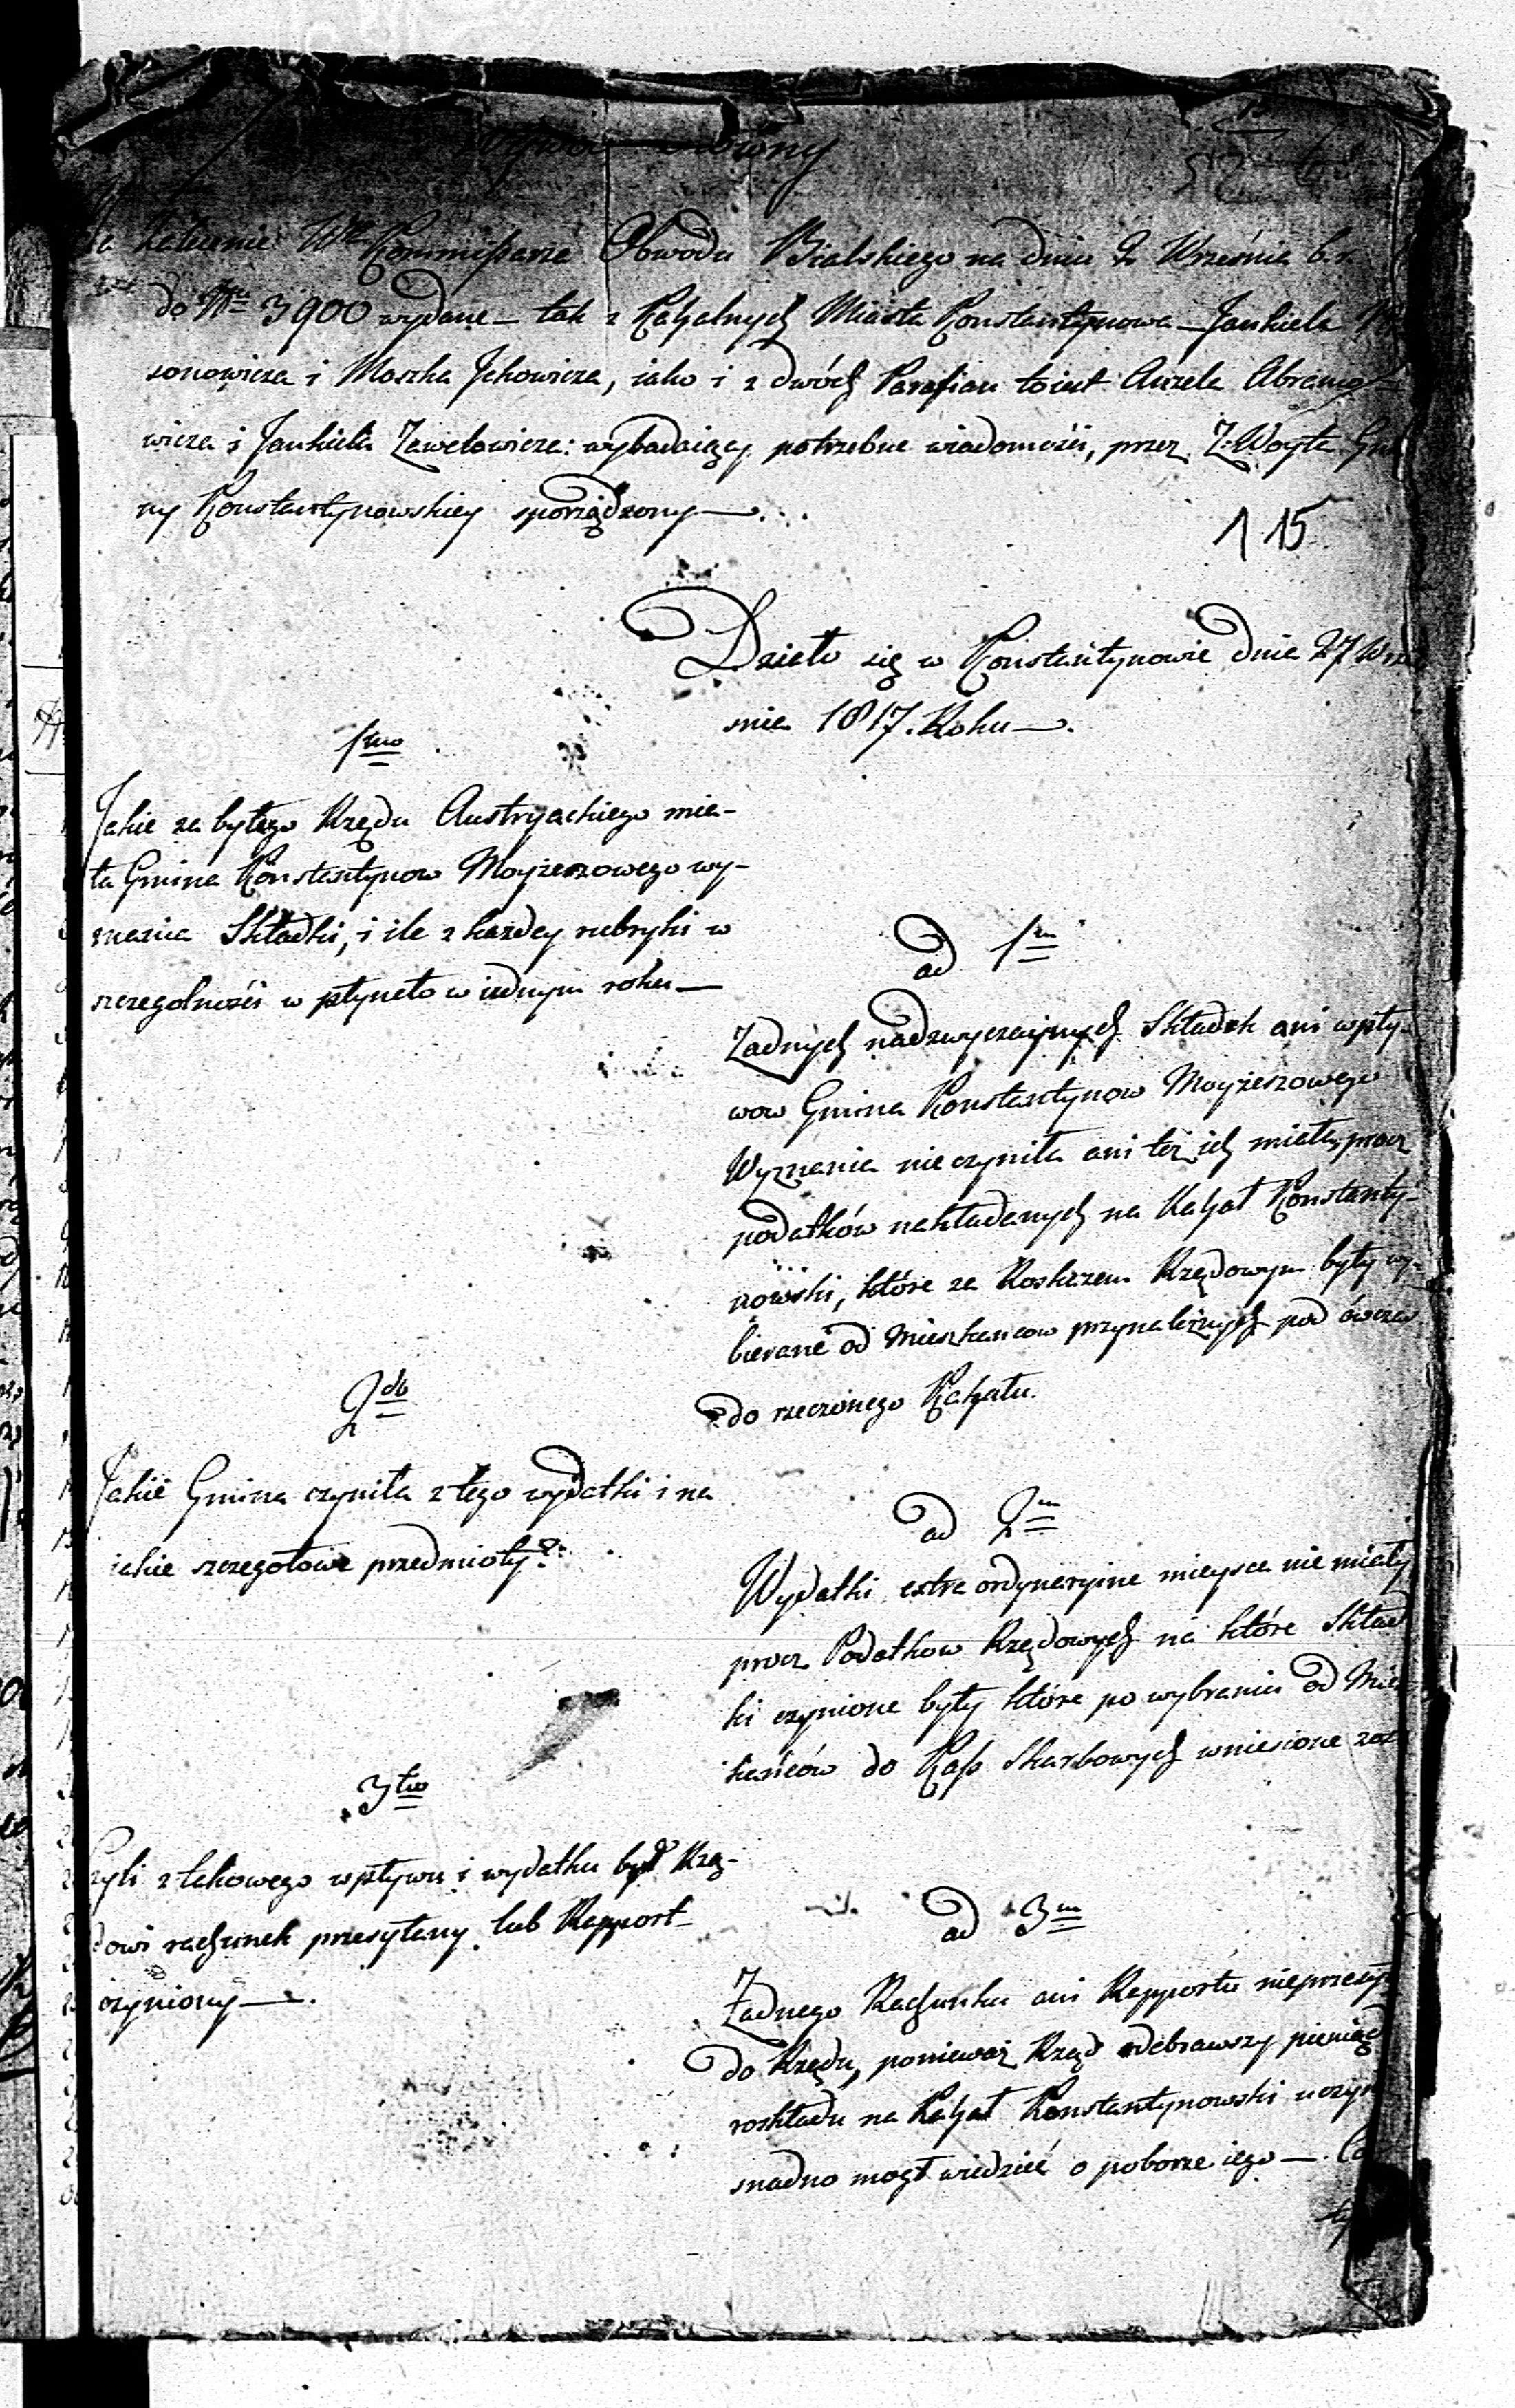 zalecenie Wo Kommissarza Obwodu Bialskiego na dniu 2 Września b. r.
do Nru 3900 wydane – tak z Kahalnych Miasta Konstantynowa – Jankiela
sonowicza i Moszka Jckowicza, iako i z dwóch Parafian toiest Anzela Abramo-
wicza i Jankiela Zawelowicza: wybadaiący potrzebne wiadomości, przez Z. Woyta Gmi
ny Konstantynowskiey sporządzony —.
1 15
Działo się w Konstantynowie dnia 27 Wrze
snia 1817. Roku —.
1mo
Jakie za byłego Rządu Austryackiego mia-
ła Gmina Konstantynow Moyżeszowego wy-
znania Składki, i ile z każdey rubryki w
szczegolności w płyneło w iednym roku —
ad 1m
Żadnych nadzwyczaynych Składek ani wpły-
wow Gmina Konstantynow Moyżeszowego
Wyznania nie czyniła ani też ich miała, procz
podatków nakładanych na Kahał Konstanty-
nowski, które za Roskazem Rządowym były wy-
bierane od Mieszkancow przynależnych pod ówczas
do rzeczonego Kahału.
2do
Jakie Gmina czyniła z tego wydatki i na
iakie szczegołowe przedmioty?
ad 2m
Wydatki extra ordynaryine mieysca nie miały
procz Podatkow Rządowych na które Skład
ki czynione były które po wybraniu od Miesz
kańców do Kass Skarbowych wniesione zos
3tio
Czyli z takowego wpływu i wydatku był Rzą-
dowi rachunek przesyłany lub Rapport
czyniony —.
ad 3m
Żadnego Rachunku ani Rapportu nieprzesył
do Rządu, ponieważ Rząd odebrawszy pieniąd
rozkładu na Kahał Konstantynowski uczyn
snadno mogł wiedzieć o poborze iego —. Co